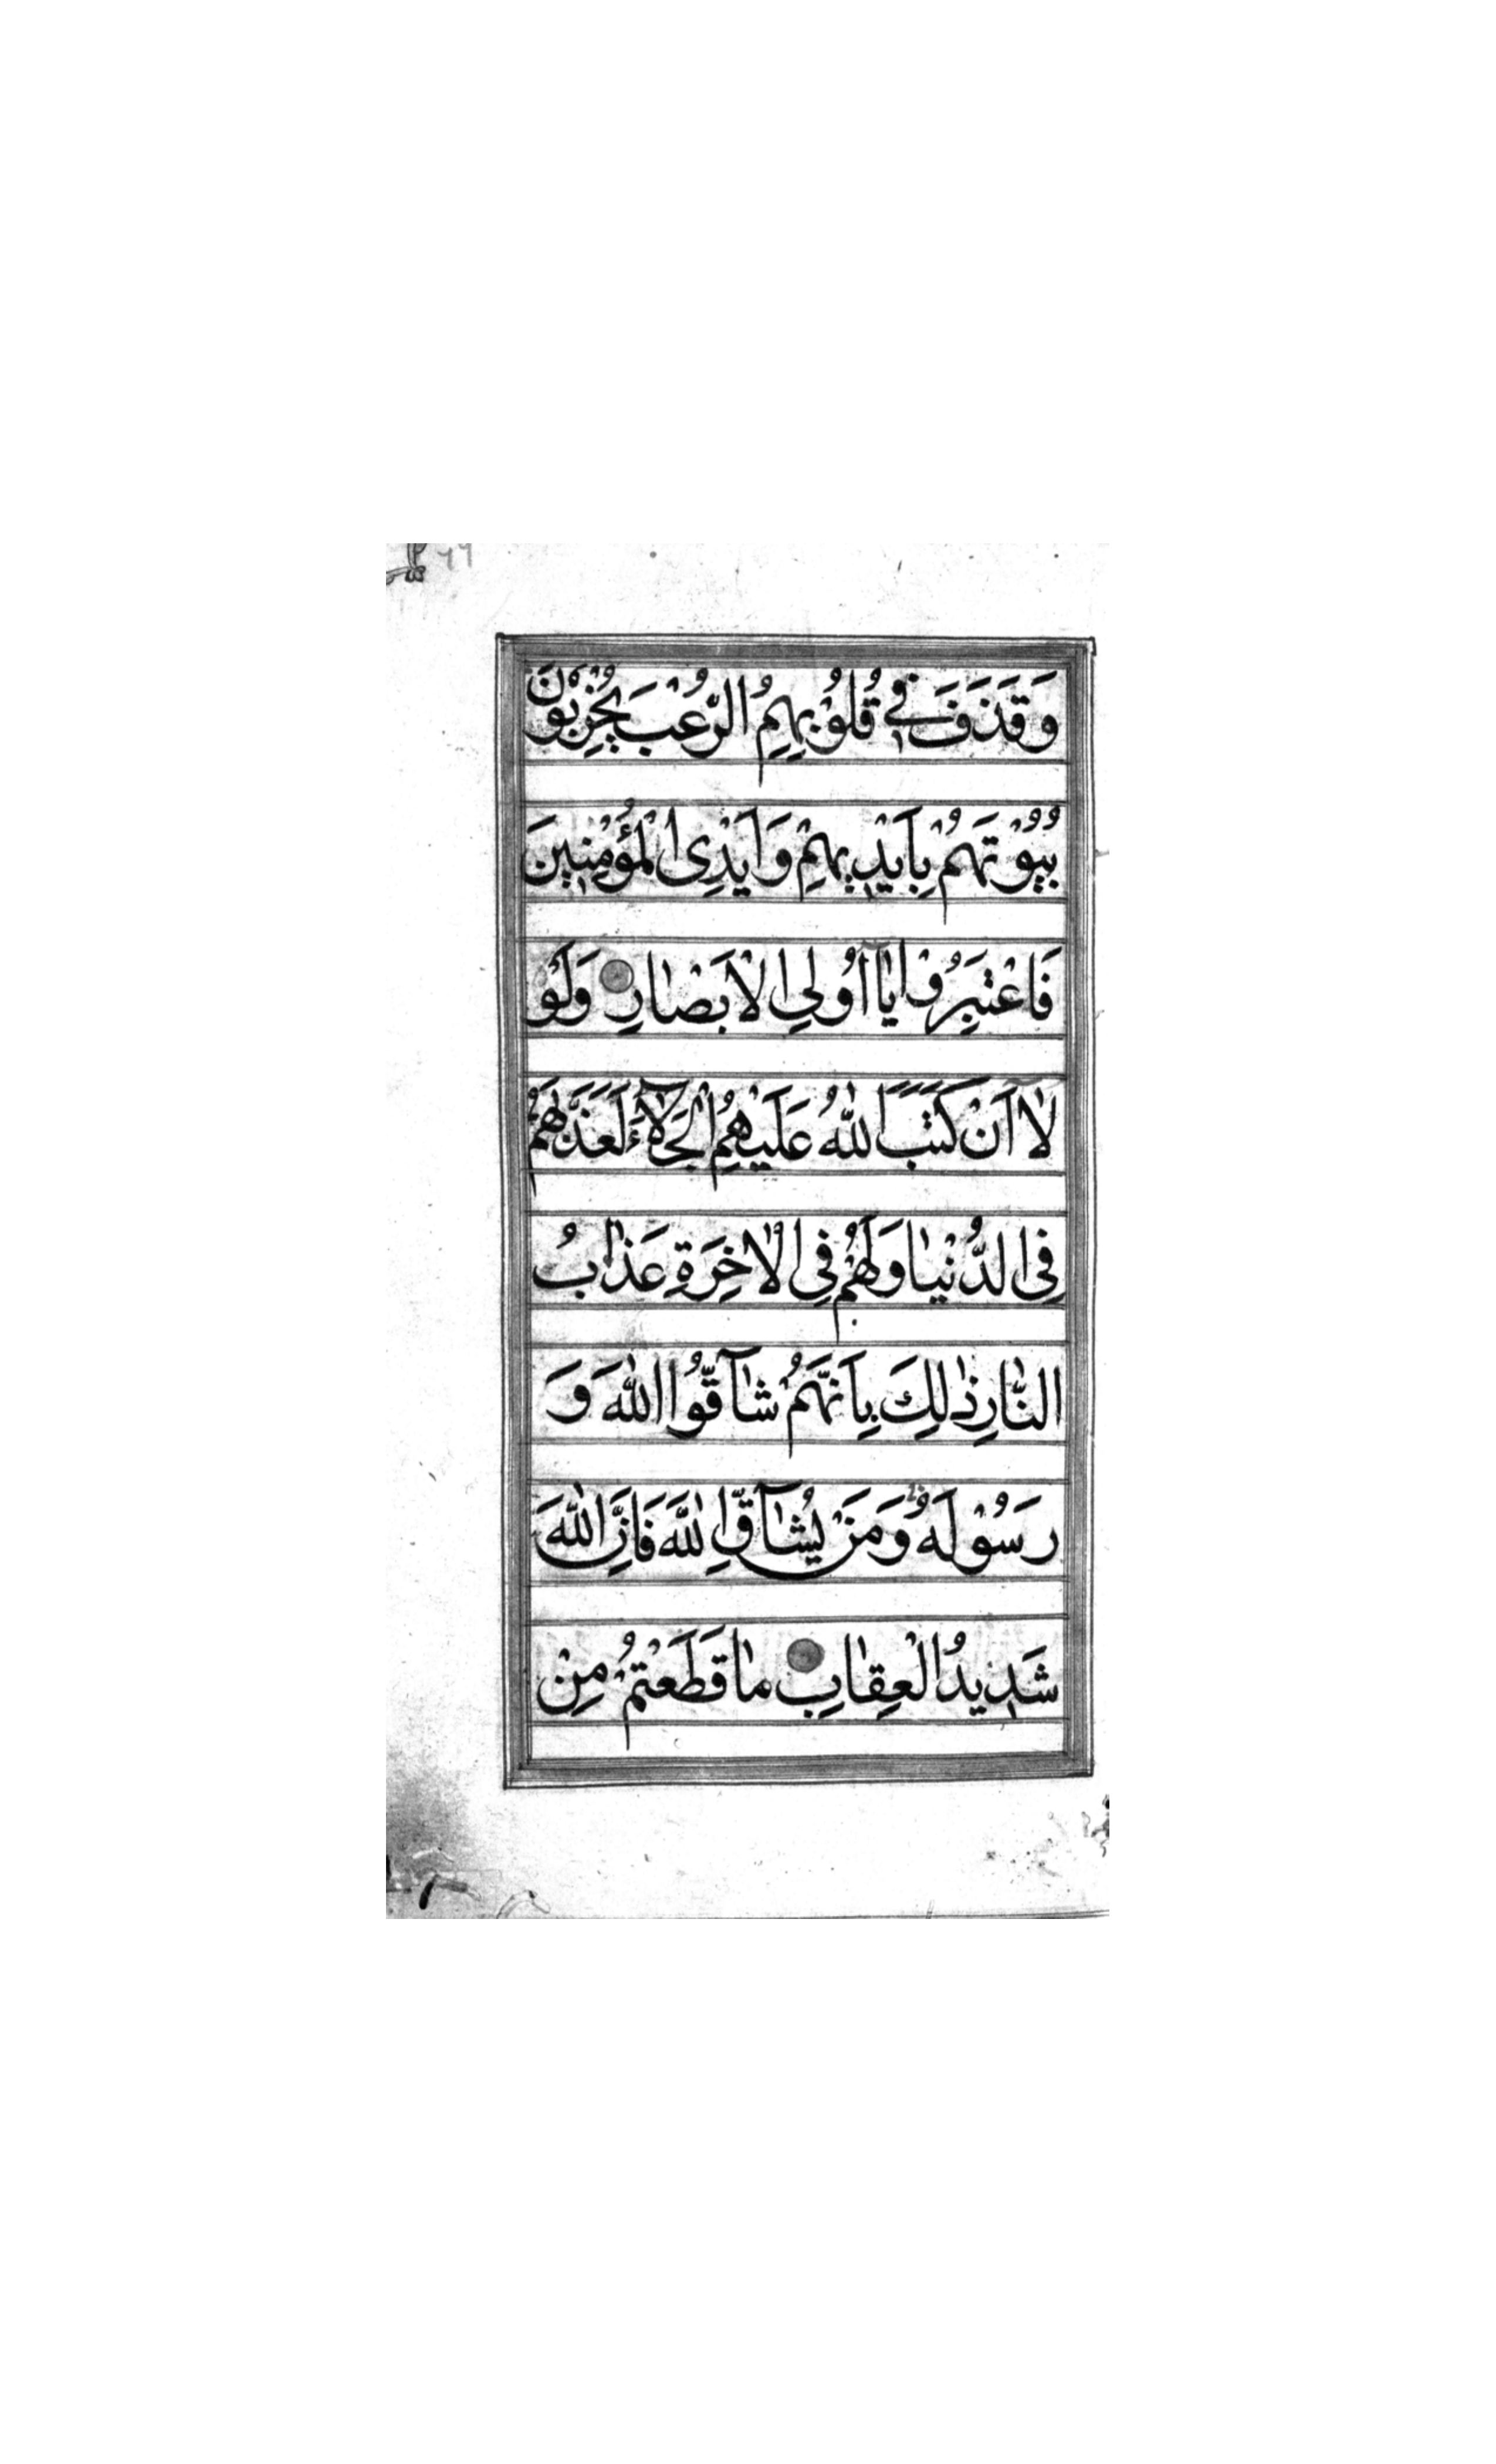 وَقَذَفَ فِي قُلُوْبِهِمُ الرُّعْبَ يُخْرِبُوْنَ
بُيُوْتَهُمْ بِاَيْدِيهِمْ وَاَيْدِى الْمُؤْمِنِينَ
فَاعْتَبِرُوْا يٰآ اُوْلِي الْاَبْصٰارِ وَلَوْ
لٰا اَنْ كَتَبَ اللّٰهُ عَلَيْهِمُ الْجَلَآءَ لَعَذَّبَهُمْ
فِي الدُّنْيٰا وَلَهُمْ فِي الْاٰخِرَةِ عَذٰابُ
النّٰارِ ذٰلِكَ بِاَنَّهُمْ شٰآقُّوا اللّٰهَ وَ
رَسُوْلَهُ وَمَنْ يُشٰآقِّ اللّٰهَ فَاِنَّ اللّٰهَ
شَدِيدُ الْعِقٰابِ مٰا قَطَعْتُمْ مِنْ